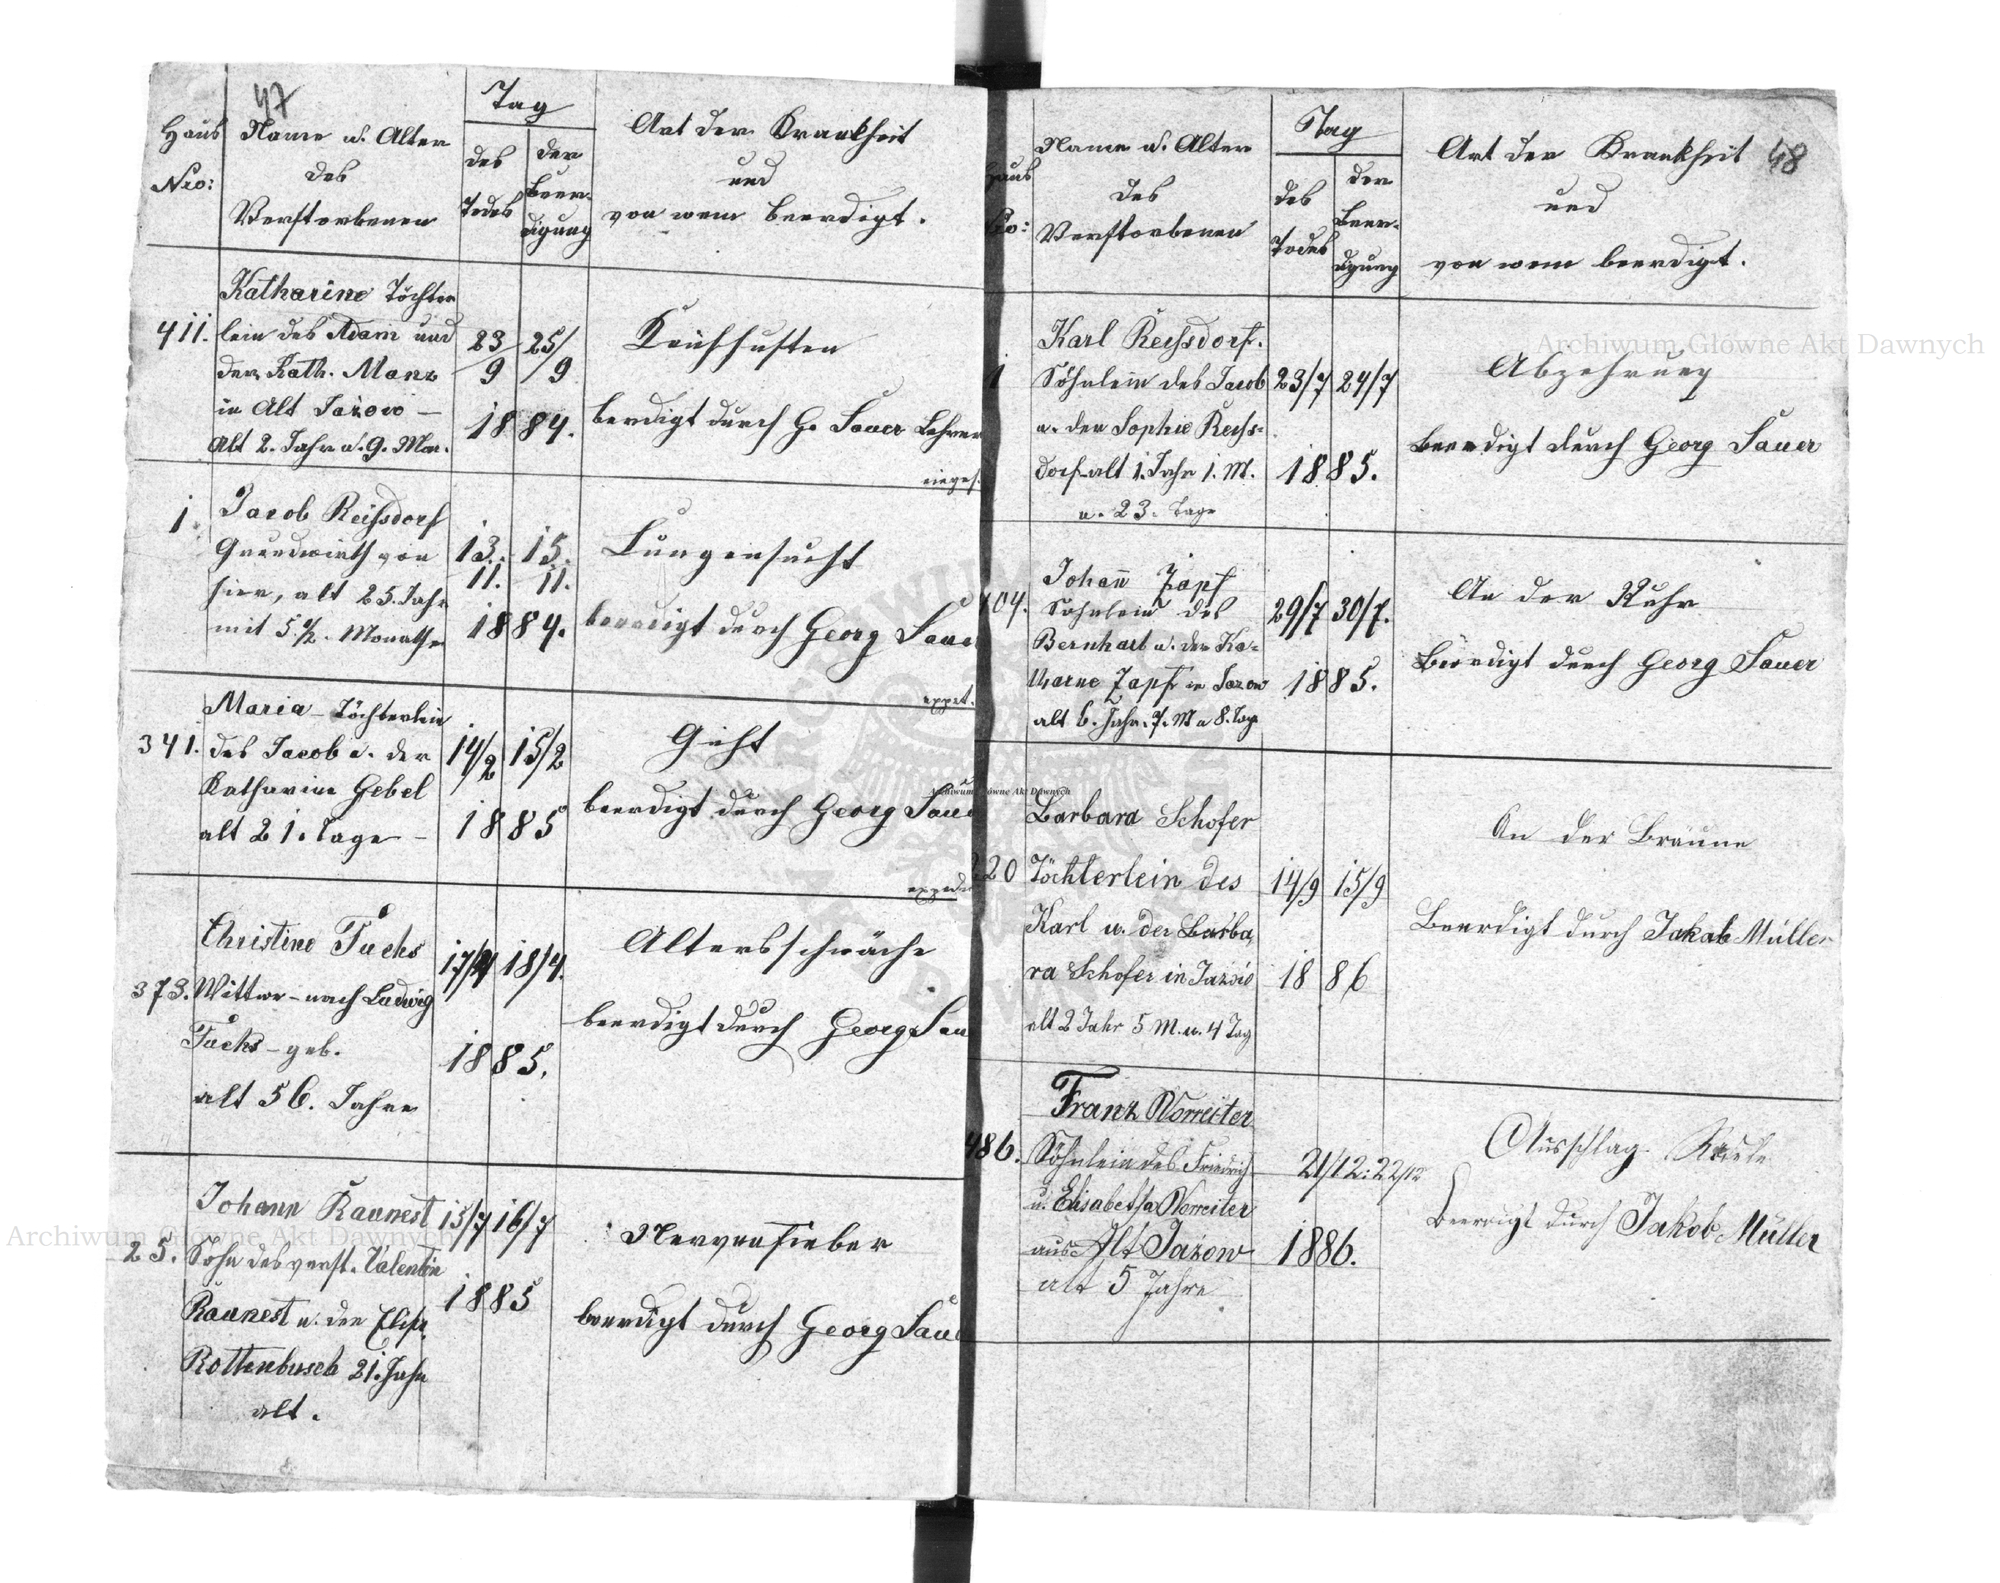 47
Haus
Nro:
Name u. Alter
des
Verstorbenen
Tag
des
Todes
der
Beer-
digung
Art der Krankheit
und
von wem beerdigt.
411.
Katharine Töchter
lein des Adam und
der Kath. Manz
in Alt Jażow —
Alt 2. Jahr u. 9. Mon.
23/9 25/9
1884.
Keichhusten
beerdigt durch G. Sauer Lehrer
eingef.
1
Jacob Reißdorf
Grundwirth von
hier, alt 25. Jahr
mit 5 1/2. Monathe
13. 15.
11. 11.
1884.
Lungensucht
beerdigt durch Georg Sauer
expet.
341.
Maria — Töchterlein
des Jacob u. der
Katharina Gebel
alt 21. Tage —
14/2 15/2
1885
Gicht
beerdigt durch Georg Sauer
exped
373.
Christine Fuchs
Wittwe — nach Ludwig
Fuchs — geb.
alt 56. Jahre
17/4 18/4.
1885.
Altersschwäche
beerdigt durch Georg Sau
25.
Johann Raunest
Sohn des verst. Valentin
Raunest u. der Elis.
Rottenbusch 21. Jahr
alt.
15/7 16/7
1885
Nervenfieber
beerdigt durch Georg Saue
48
Haus
No:
Name u. Alter
des
Verstorbenen
Tag
des
Todes
der
Beer-
digung
Art der Krankheit
und
von wem beerdigt.
1
Karl Reißdorf.
Söhnlein des Jacob
u. der Sophie Reiss-
dorf alt 1. Jahr 1. M.
u. 23. Tage
23/7 24/7
1885.
Abzehrung
Beerdigt durch Georg Sauer
404.
Johann Zapf
Söhnlein des
Bernhart u. der Ka-
tharine Zapf in Jazow
alt 6. Jahr. 7. M u 8. Tage
29/7 30/7.
1885.
An der Ruhr
Beerdigt durch Georg Sauer
220
Barbara Schofer
Töchterlein des
Karl u. der Barba,
ra Schofer in Jażow
alt 2 Jahr 5 M. u. 4 Tag
14/9 15/9
1886
An der Bräune
Beerdigt durch Jakob Müller
486.
Franz Worreiter
Söhnlein des Friedrich
u. Elisabetha Worreiter
aus Alt Jażow
alt 5 Jahre
21/12. 22/12
1886.
Ausschlag
Beerdigt durch Jakob Müller
Archiwum Główne Akt Dawnych
Archiwum Główne Akt Dawnych
Archiwum Główne Akt Dawnych